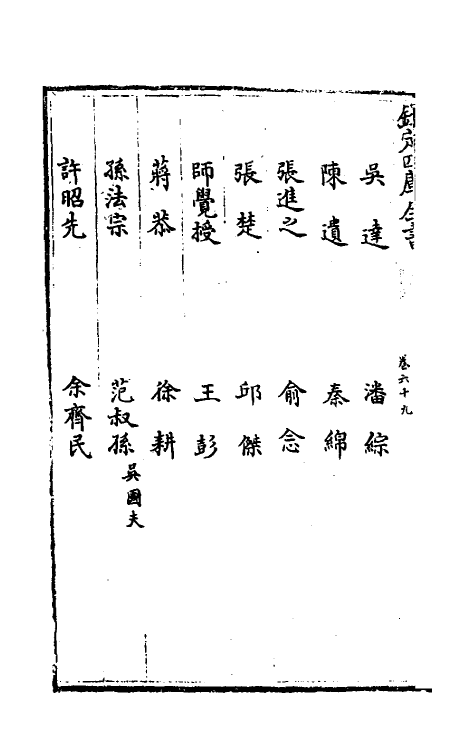 欽定四庫全書
卷六十九
吳逹 潘綜
陳遺 秦綿
張進之 俞念
張楚 邱傑
師覺授 王彭
蔣恭 徐耕
孫法宗 范叔孫 吳國夫
許昭先 余齊民